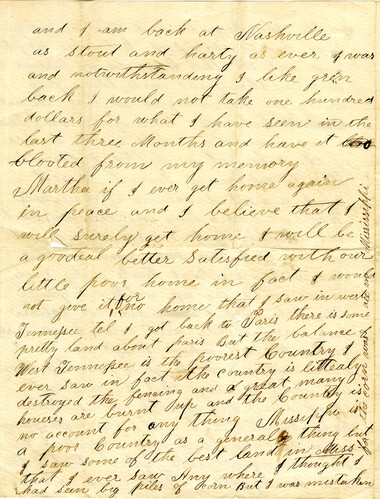 and I am back at Nashville
as stout and harty as ever I was
and notwithstanding I like green
back I would not take one hundred
dollars for what I have seen in the
last three Months and have it
blooted from my memory
Martha if I ever get home again
in peace and I believe that I
will surely get home I will be
a goodeal better satisfied with our
little poor home in fact I would
not give it for no home that I saw in west
Tennessee tel I got back to Paris there is some
pretty land about paris But the balance of
West Tennessee is the poorest Country I
ever saw in fact tho country is littealy
destroyed the fensing and a great many
houses are burnt up and the Country is
no account for any thing Missippi is
a poor Country as a general thing but
I saw some of the best land in Miss
that I ever saw Any where I thought I
had seen big piles of corn But I was mistaken
in Mississippi